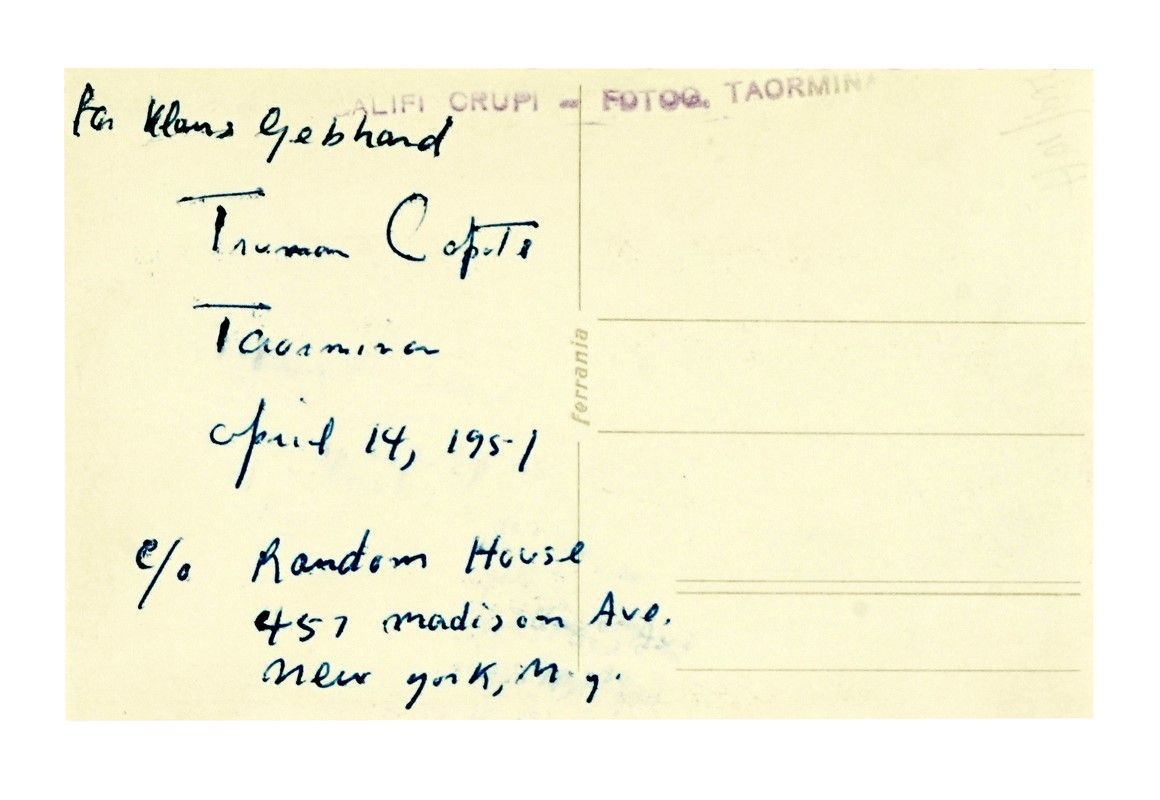 For Klaus Gebhard
ALIFI CRUPI - FOTOG. TAORMINA
Truman Capote
Taormina
april 14, 1951
ferrania
c/o Random House
457 madison Ave.
New york, N.y.